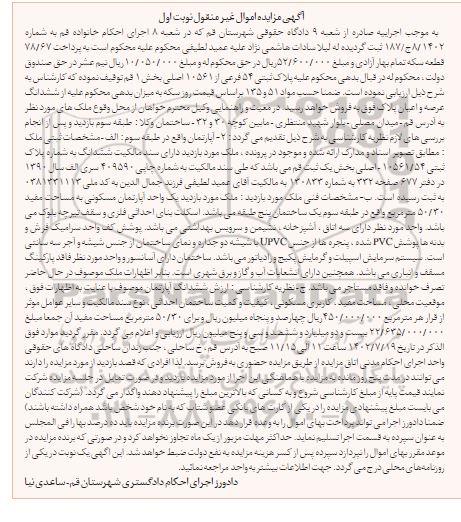 آگهی مزایده اموال غیر منقول نوبت اول
به موجب اجراییه صادره از شعبه ۹ دادگاه حقوقی شهرستان قم که در شعبه ۸ اجرای احکام خانواده قم به شماره
۱۸۷/ج۸/۱۴۰۲ ثبت گردیده له لیلا سادات هاشمی نژاد علیه عمید لطیفی محکوم علیه محکوم است به پرداخت ۷۸/۶۷
قطعه سکه تمام بهار آزادی و مبلغ ۵۲/۶۰۰/۰۰۰ ریال در حق محکوم له و مبلغ ۱۰/۰۵۰/۰۰۰ ریال نیم عشر در حق صندوق
دولت، محکوم له در قبال بدهی محکوم علیه پلاک ثبتی ۵۴ فرعی از ۱۰۵۶۱ اصلی بخش ۱ قم توقیف نموده که کارشناس به
شرح ذیل ارزیابی نموده است. ضمنا حسب مواد ۵۱ و ۱۳۵ براساس قیمت روز سکه به میزان بدهی محکوم علیه از ششدانگ
عرصه و اعیان پلاک فوق به فروش خواهد رسید. در معیت و راهنمایی وکیل محترم خواهان از محل وقوع ملک های مورد نظر
به آدرس قم - میدان مصلی - بلوار شهید منتظری - مابین کوچه ۳۰ و ۳۲ - ساختمان وکلا: طبقه سوم بازدید و پس از انجام
بررسی های لازم نظریه کارشناسی به شرح ذیل تقدیم می گردد: ۲- آپارتمان واقع در طبقه سوم: الف- مشخصات ثبتی ملک
: مطابق تصویر اسناد و مدارک ارائه شده و موجود در پرونده، ملک مورد بازدید دارای سند مالکیت ششدانگ به شماره پلاک
ثبتی ۱۰۵۶۱/۵۴ - اصلی بخش یک ثبت قم می باشد که طی سند مالکیت به شماره چاپی ۴۰۹۵۹۰ سری الف سال ۱۳۹۰
در دفتر ۶۷۷ صفحه ۳۳۲ به شماره ۱۳۰۸۳۳ به مالکیت آقای عمید لطیفی فرزند جمال الدین به کد ملی ۰۳۸۱۳۳۱۱۱۳
به ثبت رسیده است. ب- مشخصات فنی ملک مورد بازدید: ملک مورد بازدید یک واحد آپارتمان مسکونی به مساحت مفید
۵۰/۳۰ مترمربع واقع در طبقه سوم یک ساختمان پنج طبقه می باشد. اسکلت بنای احداثی فلزی و سقف تیرچه بلوک می
باشد. واحد مورد نظر دارای سه اتاق، آشپزخانه، نشیمن و سرویس بهداشتی می باشد. پوشش کف واحد سرامیک فرش و
بدنه ها پوشش PVC شده، پنجره ها از جنس UPVC با شیشه دو جداره و نمای ساختمان از جنس شیشه و آجر سه سانتی
است. سیستم سرمایش اسپیلت و گرمایش پکیج و رادیاتور می باشد. ساختمان دارای آسانسور و واحد مورد نظر فاقد پارکینگ
مسقف و انباری می باشد. همچنین دارای انشعابات آب و گاز و برق شهری است. بنابر اظهارات ملک موصوف در حال حاضر
تصرف خوانده و فاقد مستاجر می باشد. ج- نظریه کارشناسی: ارزش ششدانگ آپارتمان موصوف با عنایت به اظهارات فوق،
موقعیت محلی، مساحت مفید، کاربری مسکونی، کیفیت و کمیت ساختمان احداثی، نوع سند مالکیت و سایر عوامل موثر
از قرار هر مترمربع ۴۵۰/۰۰۰/۰۰۰ ریال چهارصد و پنجاه میلیون ریال و برای ۵۰/۳۰ مترمربع مساحت مفید آن جمعا مبلغ
۲۲/۶۳۵/۰۰۰/۰۰۰ بیست و دو میلیارد و ششصد و سی و پنج میلیون ریال ارزیابی و اعلام می گردد. مقرر گردید موارد فوق
الذکر در تاریخ ۱۴۰۲/۷/۱۹ ساعت ۱۱ الی ۱۱/۱۵ صبح به آدرس قم، خ ساحلی، جنب پل، ساحلی دادگاه های حقوقی
واحد اجرای احکام مدنی اتاق مزایده از طریق مزایده حضوری به فروش برسد. لذا افرادی که قصد بازدید از مورد مزایده را دارند
می توانند در مدت پنج روز مانده به مزایده با هماهنگی این اجرا از مورد مزایده بازدید و در صورت تمایل در جلسه مزایده شرکت
نمایند قیمت پایه از مبلغ کارشناسی شروع و به کسانی که بالاترین مبلغ را پیشنهاد دهند واگذار می گردد. (شرکت کنندگان
می بایست مبلغ پیشنهادی مزایده را در یکی از کارت های بانکی عضو شتاب که به نام خود شخص باشد همراه داشته باشند)
ضمنا دادورز اجرا می تواند پرداخت بهای اموال را به وعده قرار دهد در این صورت برنده مزایده باید ده درصد بها را فی المجلس
به عنوان سپرده به قسمت اجرا تسلیم نماید. حداکثر مهلت مزبور از یک ماه تجاوز نخواهد کرد و در صورتی که برنده مزایده در
موعد مقرر بهای اموال را نپردازد سپرده پس از کسر هزینه مزایده به نفع دولت ضبط خواهد شد. این آگهی یک نوبت در یکی از
روزنامه‌های محلی درج می گردد. جهت اطلاعات بیشتر به واحد مراجعه نمائید.
دادورز اجرای احکام دادگستری شهرستان قم - ساعدی نیا